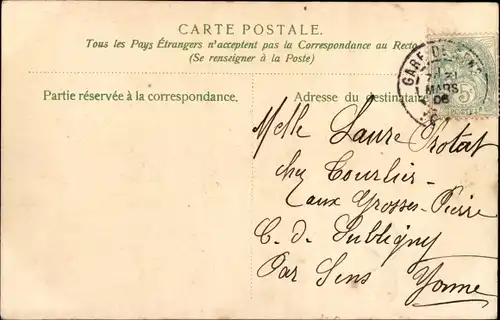 CARTE POSTALE.
Tous les Pays Étrangers n'acceptent pas la Correspondance au Recto
(Se renseigner à la Poste)
Partie réservée à la correspondance.
Adresse du destinataire
GARE DE
MARS
06
5
Melle Laure Protat
chez Tourlier
aux Grosses-Pierre
C. d. Subligny
Par Sens Yonne